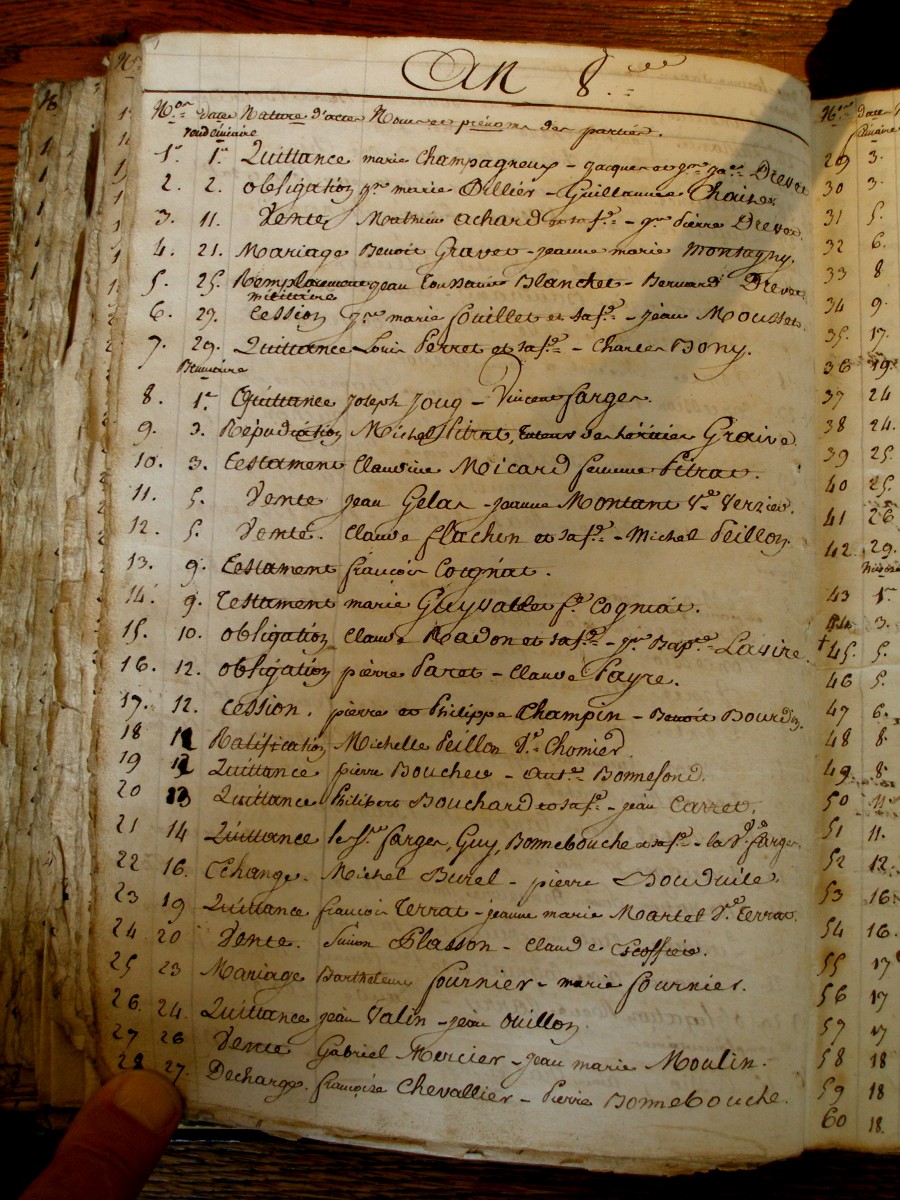 An 8.ee
N.os Dates Nature d'actes Noms et prénoms des parties.
vendémiaire
1.er 1.er Quittance marie Champagneux - jacques et Drevet
2. 2. obligation marie Dillier - Guillaume
3. 11. Vente Mathieu achard et sa f.e - pierre Drevet
4. 21. Mariage Benoit Gravet - jeanne marie Montagny.
5. 25. Remplacement jean Toussaint Blanchet - Bernard Drevet
militaire
6. 29. Cession marie Souillet et sa f.e - jean Mousset.
7. 29. Quittance Louis Perret et sa f.e - Charles Bony.
Brumaire
8. 1.er Quittance joseph joug - Vincent farges.
9. 3. Répudiation Michel Pitrat, tuteur des héritiers Graive
10. 3. testament Claudine Micard femme Pitrat.
11. 5. Vente jean Gelas - jeanne Montant V.e Verzier.
12. 5. Vente. Claude flachen et sa f.e - Michel Peillon.
13. 9. testament françois Cognat.
14. 9. Testament marie f.e Cogniat.
15. 10. obligation Claude Radon et sa f.e - Bap.te Lasire.
16. 12. obligation pierre Paret - Claude Payre.
17. 12. Cession. pierre et Philippe Champin - Benoit Bourdin
18 12 Ratification Michelle Peillon V.e Chomier
19 12 Quittance pierre Bouchee - ant.e Bonnefond.
20 13 Quittance Philibert Bouchard et sa f.e - jean Carret.
21 14 Quittance le s.r farges, Guy, Bonnebouche et sa f.e - la farges
22 16. Echange. Michel Burel - pierre Douduile.
23 19 Quittance françois Terrat - jeanne marie Martel V.e Terrat.
24 20 Vente. Simon Plasson - Claude Escoffier.
25 23 Mariage Barthelemy fournier - marie fournier.
26. 24. Quittance jean Valin - jean ouillon.
27 26 Vente Gabriel Mercier - jean marie Moulin.
28 27. Decharge. françoise Chevallier - Pierre Bonnebouche.
N.os Dates
29 3.
30 3.
31 5.
32 6.
33 8
34 9.
35. 17.
36 19.
37 24
38 24.
39 25.
40 25.
41 26
42. 29.
43 1.er
44 3.
+ 45. 5.
46 5.
47 6.
48 8.
49. 8.
50 11
51 11.
52 12.
53 16.
54 16.
55 17
56 17
57 17
58 18
59 18
60 18.